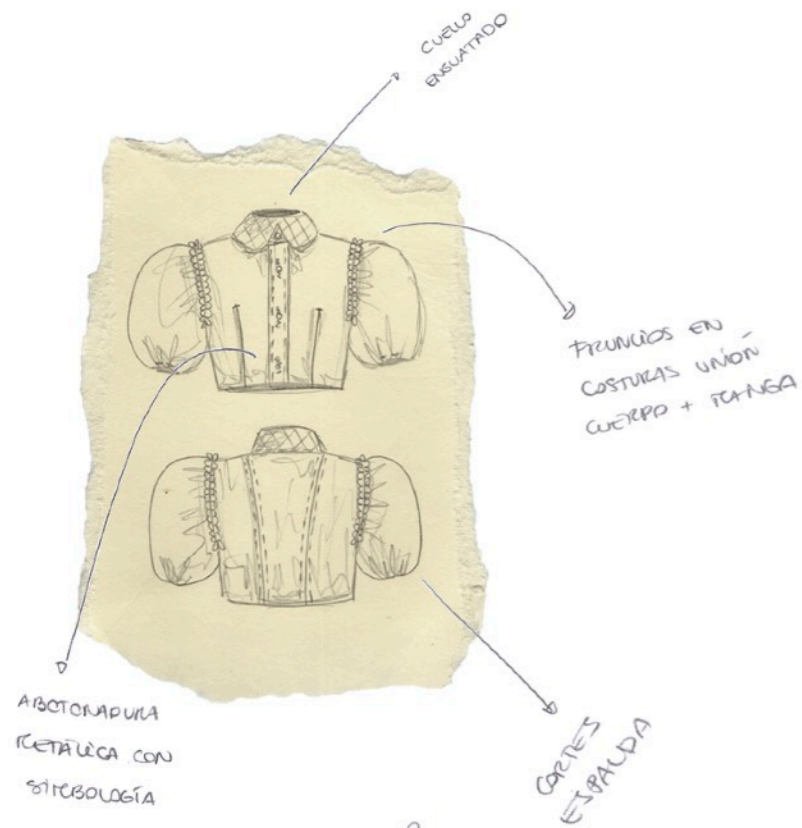 CUELLO
ENGUATADO
FRUNCIDOS EN
COSTURAS UNIÓN
CUERPO + MANGA
ABOTONADURA
METÁLICA CON
SIMBOLOGÍA
CORTES
ESPALDA